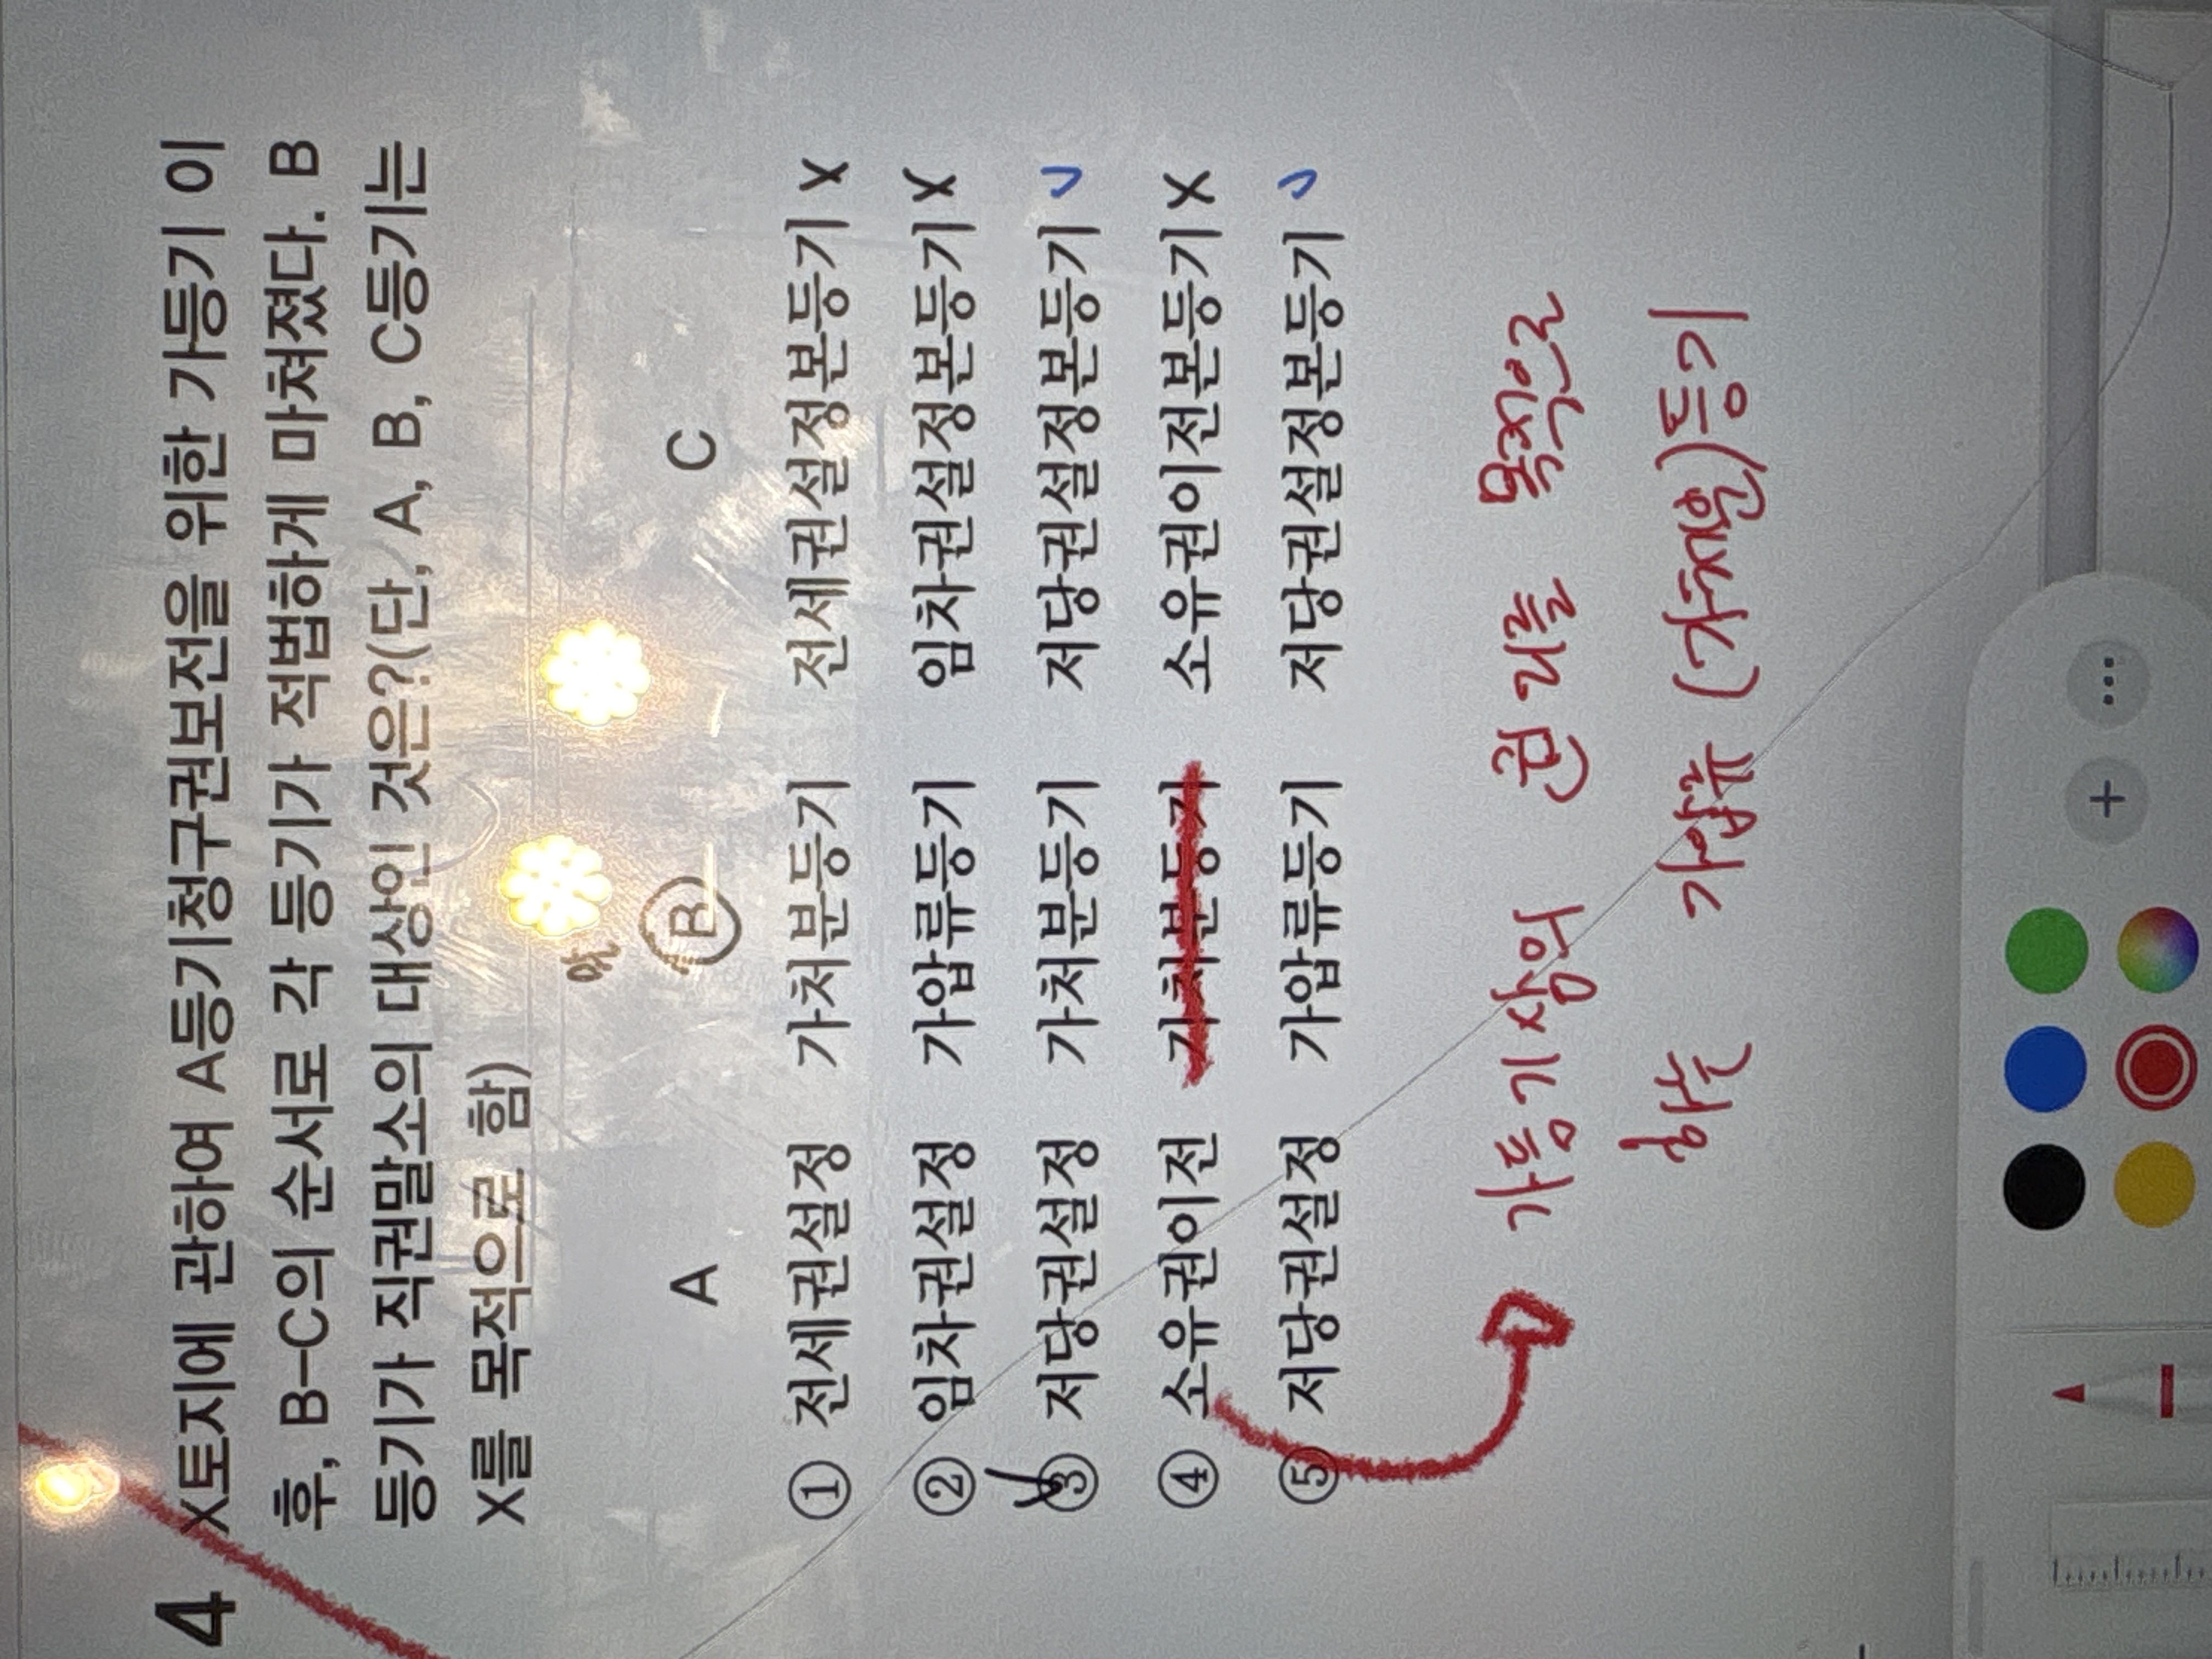 4 X토지에 관하여 A등기청구권보전을 위한 가등기 이
후, B-C의 순서로 각 등기가 적법하게 마쳐졌다. B
등기가 직권말소의 대상인 것은?(단, A, B, C등기는
X를 목적으로 함)
A B C
① 전세권설정 가처분등기 전세권설정본등기 X
② 임차권설정 가압류등기 임차권설정본등기 X
③ 저당권설정 가처분등기 저당권설정본등기
④ 소유권이전 가처분등기 소유권이전본등기 X
⑤ 저당권설정 가압류등기 저당권설정본등기
가등기상의 권리를 목적으로
하는 가압류 (가처분)등기